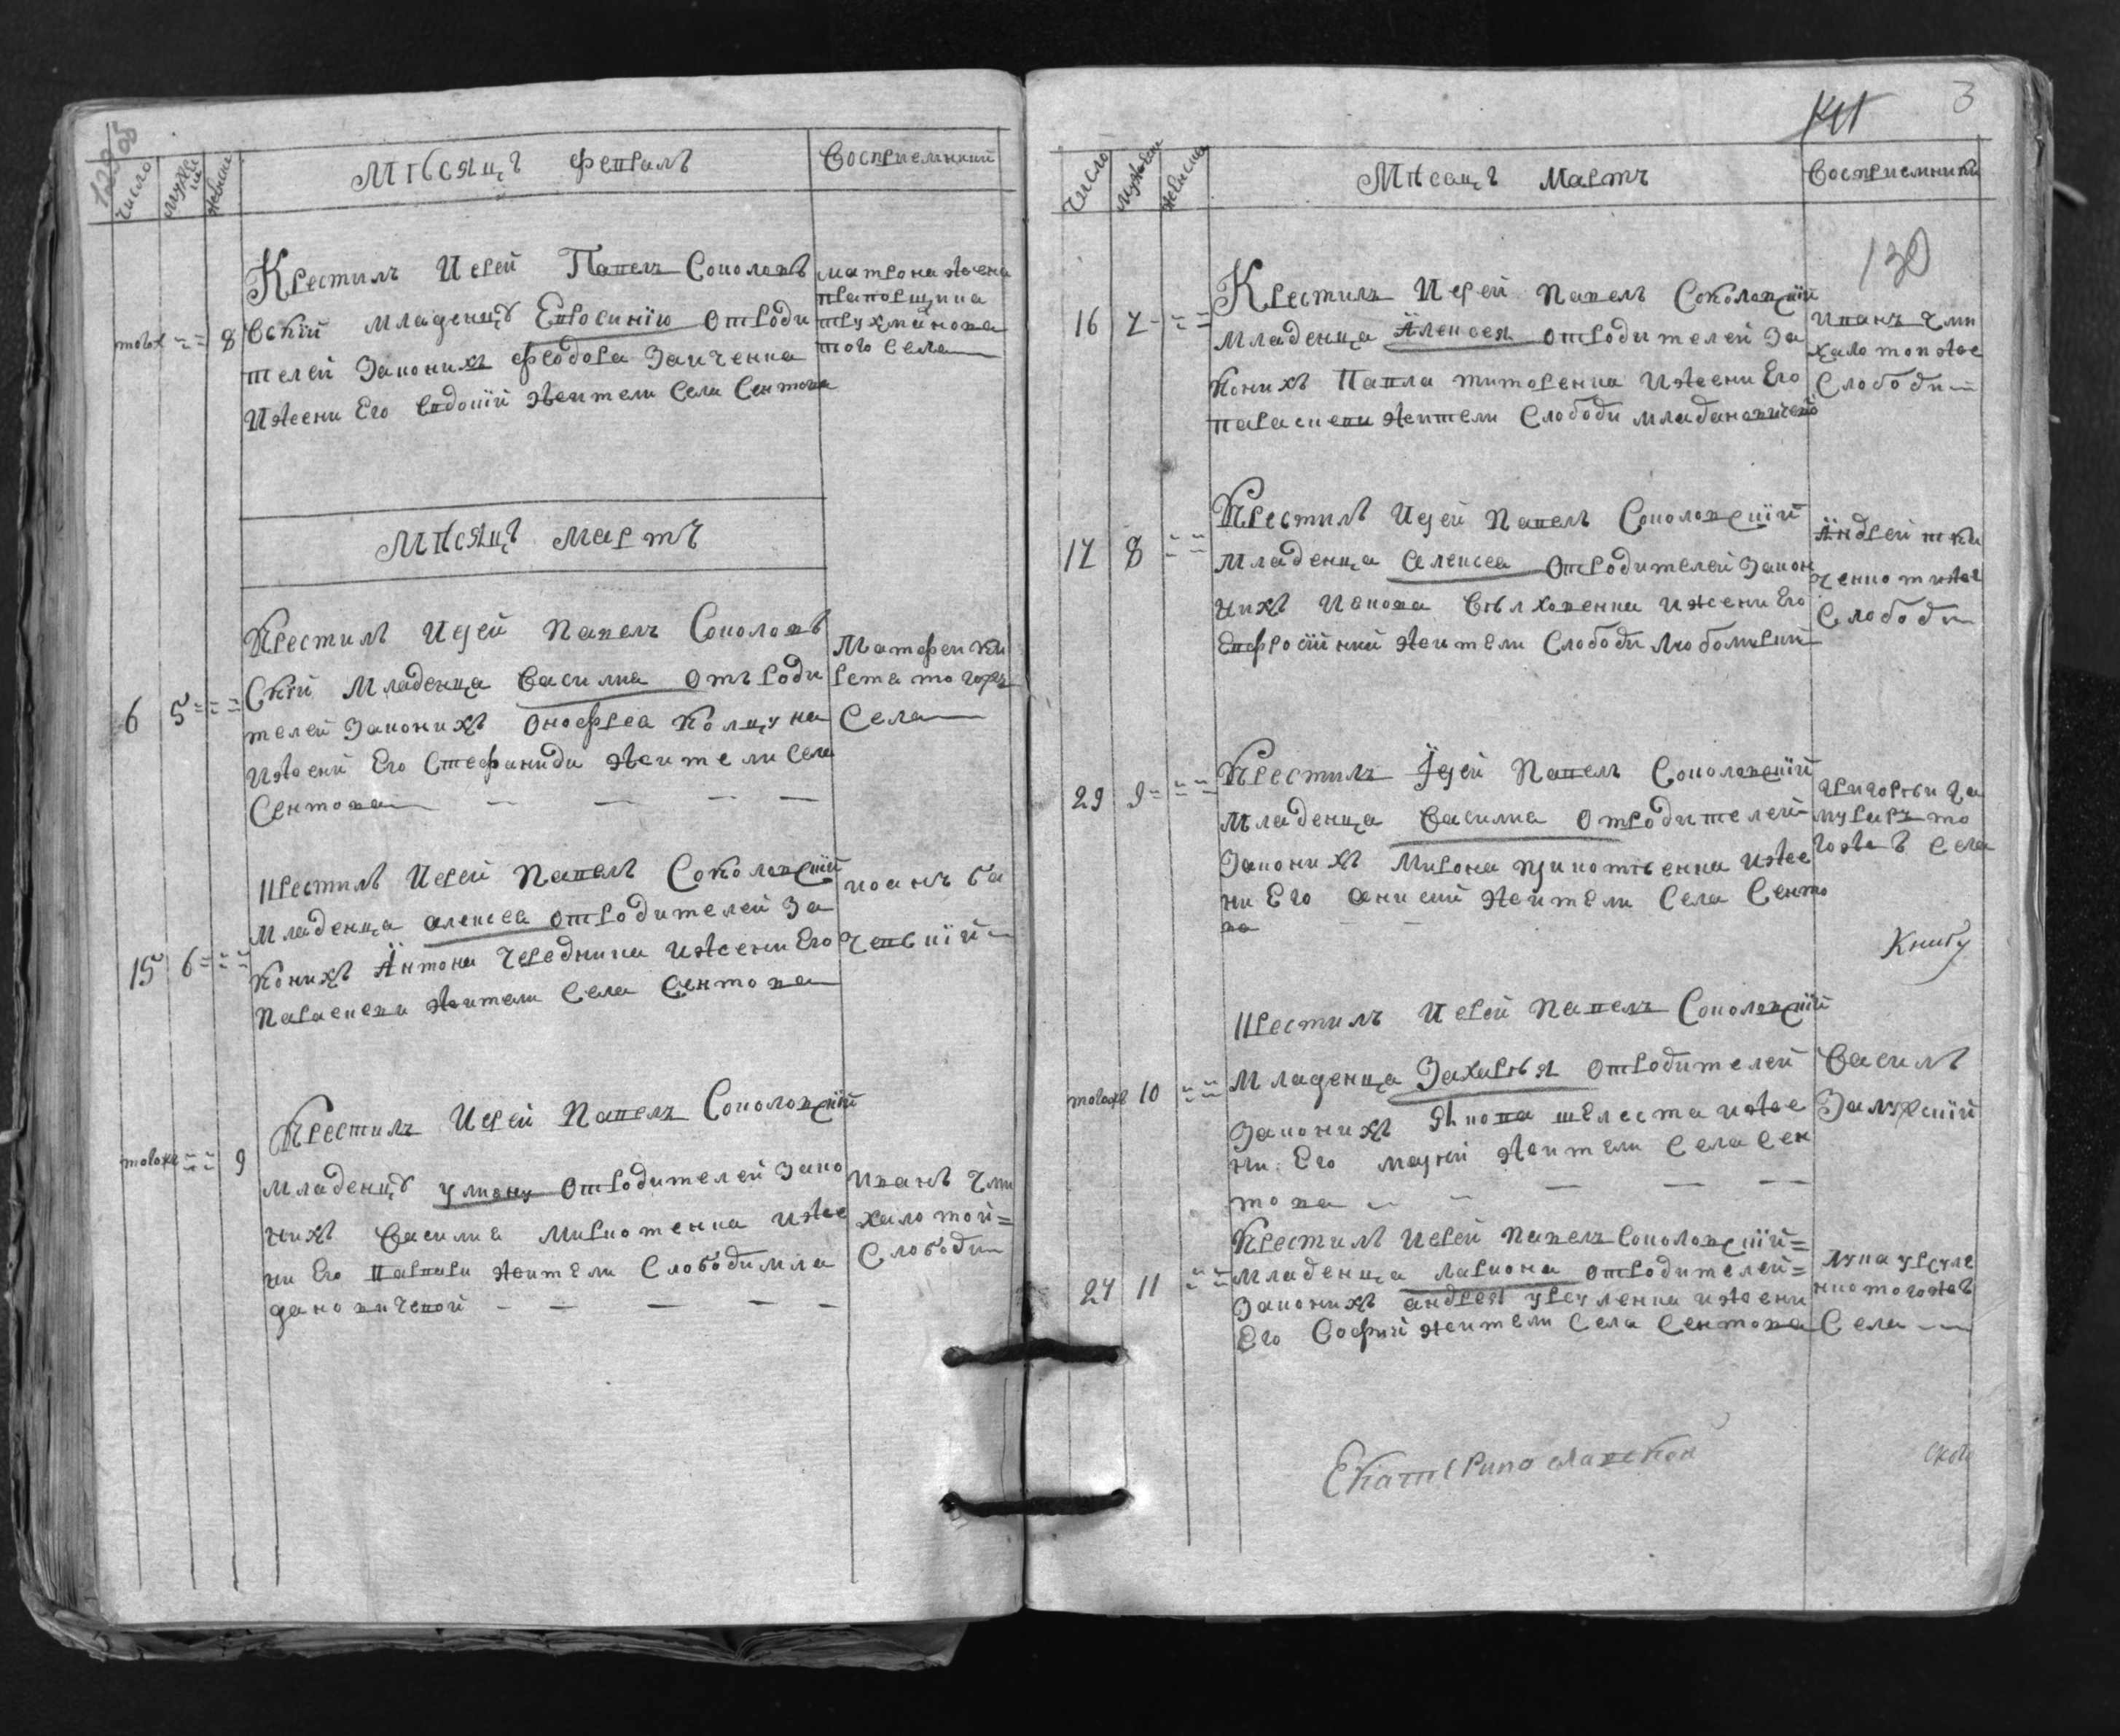 число
мужеский
женский
Мѣсяцъ февралъ
Восприемники
Крестилъ Иерей Павелъ Соколовъ
вский младенцѣ Евросинию отроди
телей Законихъ Феодора Заиченка
Ижени Его Евдокий жители Села Сентова
тогож
8
матрона жена
прапорщика
того Села
Мѣсяцъ мартъ
6
5
Крестилъ Иерей Павелъ Соколовъ
ский Младенца василиа отъ роди
телей Законихъ Онофреа Колцуна
Ижений Его Стефаниди жители Села
Сентова
Матфеи Ки
Села
15
6
Крестилъ Иерей Павелъ Соколовский
Младенца алексеа отродителей За
конихъ Антона Чередника Ижени Его
Параскеви жители Села Сентова
иоанъ ба
чевский
тогоже
9
Крестилъ Иерей Павелъ Соколовский
Младенцѣ улиану отродителей Зако
нихъ василиа Миркотенка иже
ни Его Варвари жители Слободи мла
дановичевой
Иванъ Чми
хало той=
Слободи
3
130
число
мужески
женска
Мѣсацъ Мартъ
Восприемники
16
7
Крестилъ Иерей Павелъ Соколовский
Младенца Алексея отродителей За
конихъ Павла титоренка Ижени Его
параскеви жители Слободи младановичевой
Иванъ Чми
хало тоижее
Слободи
17
8
Крестилъ Иерей Павелъ Соколовский
Младенца алексеа отродителей Закон
нихъ Иакова Вѣлховенка ижени Его
Евфросийний жители Слободи Любомирки
Андрей тка
ченко тиже
Слободи
29
9
Крестилъ Иерей Павелъ Соколовский
Младенца василиа отродителей
Законихъ Мирона иже
ни Его анисий жители Села Сенто
ва
Григорѣи
то
гожъ Села
Книгу
тогоже
10
Крестилъ Иерей Павелъ Соколовский
Младенца Захарѣя отродителей
Законихъ Якова шелеста иже
ни Его марий жители Села Сен
това
Василъ
Залужский
24
11
Крестилъ Иерей Павелъ Соколовский=
Младенца лариона отродителей=
Законихъ андрея урсуленка ижени
Его Софий жители Села Сентова
лука урсуле
нко тогожъ
Села
Екатериnославской
ской